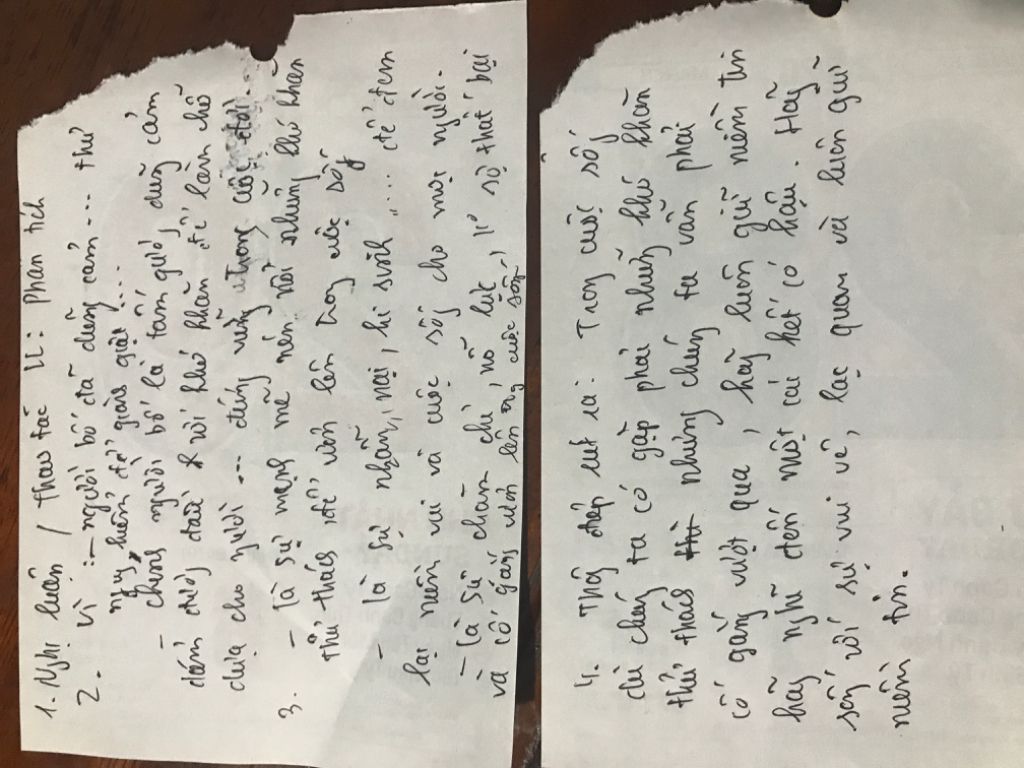 1. Nghị luận / thao tác LL: phân tích
2. Vì :- người bố đã dũng cảm --- thử
nguy hiểm để giảng giải ...
- chứng người bố là tấm gương dũng cảm
dám đương đầu với khó khăn để làm chỗ
dựa cho với --- đứng vững trong cuộc đời ...
3. - là sự mạnh mẽ nén nỗi những khó khăn
thử thách để vươn lên trong cuộc sống
- là sự nhẫn nại, hi sinh .... để đem
lại niềm vui và cuộc sống cho mọi người.
- là sự chăm chỉ, nỗ lực, ko sợ thất bại
và cố gắng vươn lên trong cuộc sống
4. Thông điệp rút ra: Trong cuộc sống
dù chúng ta có gặp phải những khó khăn
thử thách nhưng chúng ta vẫn phải
cố gắng vượt qua, hãy luôn giữ niềm tin
hãy nghĩ đến một cái kết có hậu. Hãy
sống với sự vui vẻ, lạc quan và luôn giữ
niềm tin.